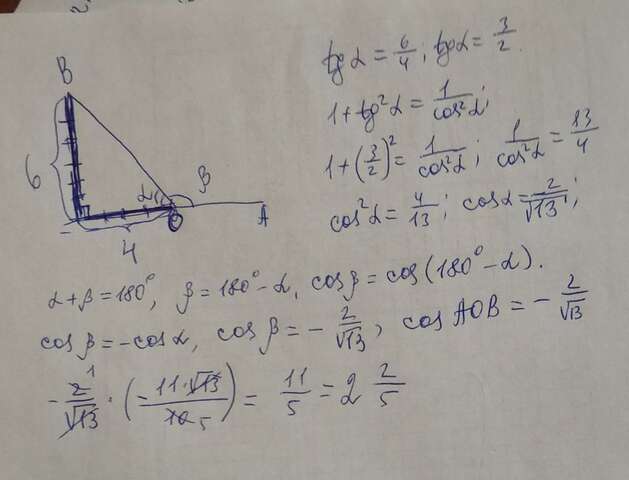 tgα = 6/4; tgα = 3/2.
1 + tg²α = 1/cos²α;
1 + (3/2)² = 1/cos²α; 1/cos²α = 13/4
cos²α = 4/13; cosα = 2/√13;
B
6
α
β
O
A
4
α + β = 180°, β = 180° - α, cos β = cos(180° - α).
cos β = -cos α, cos β = - 2/√13; cos AOB = - 2/√13
- 2/√13 · (- 11·√13/10) = 11/5 = 2 2/5
1
5